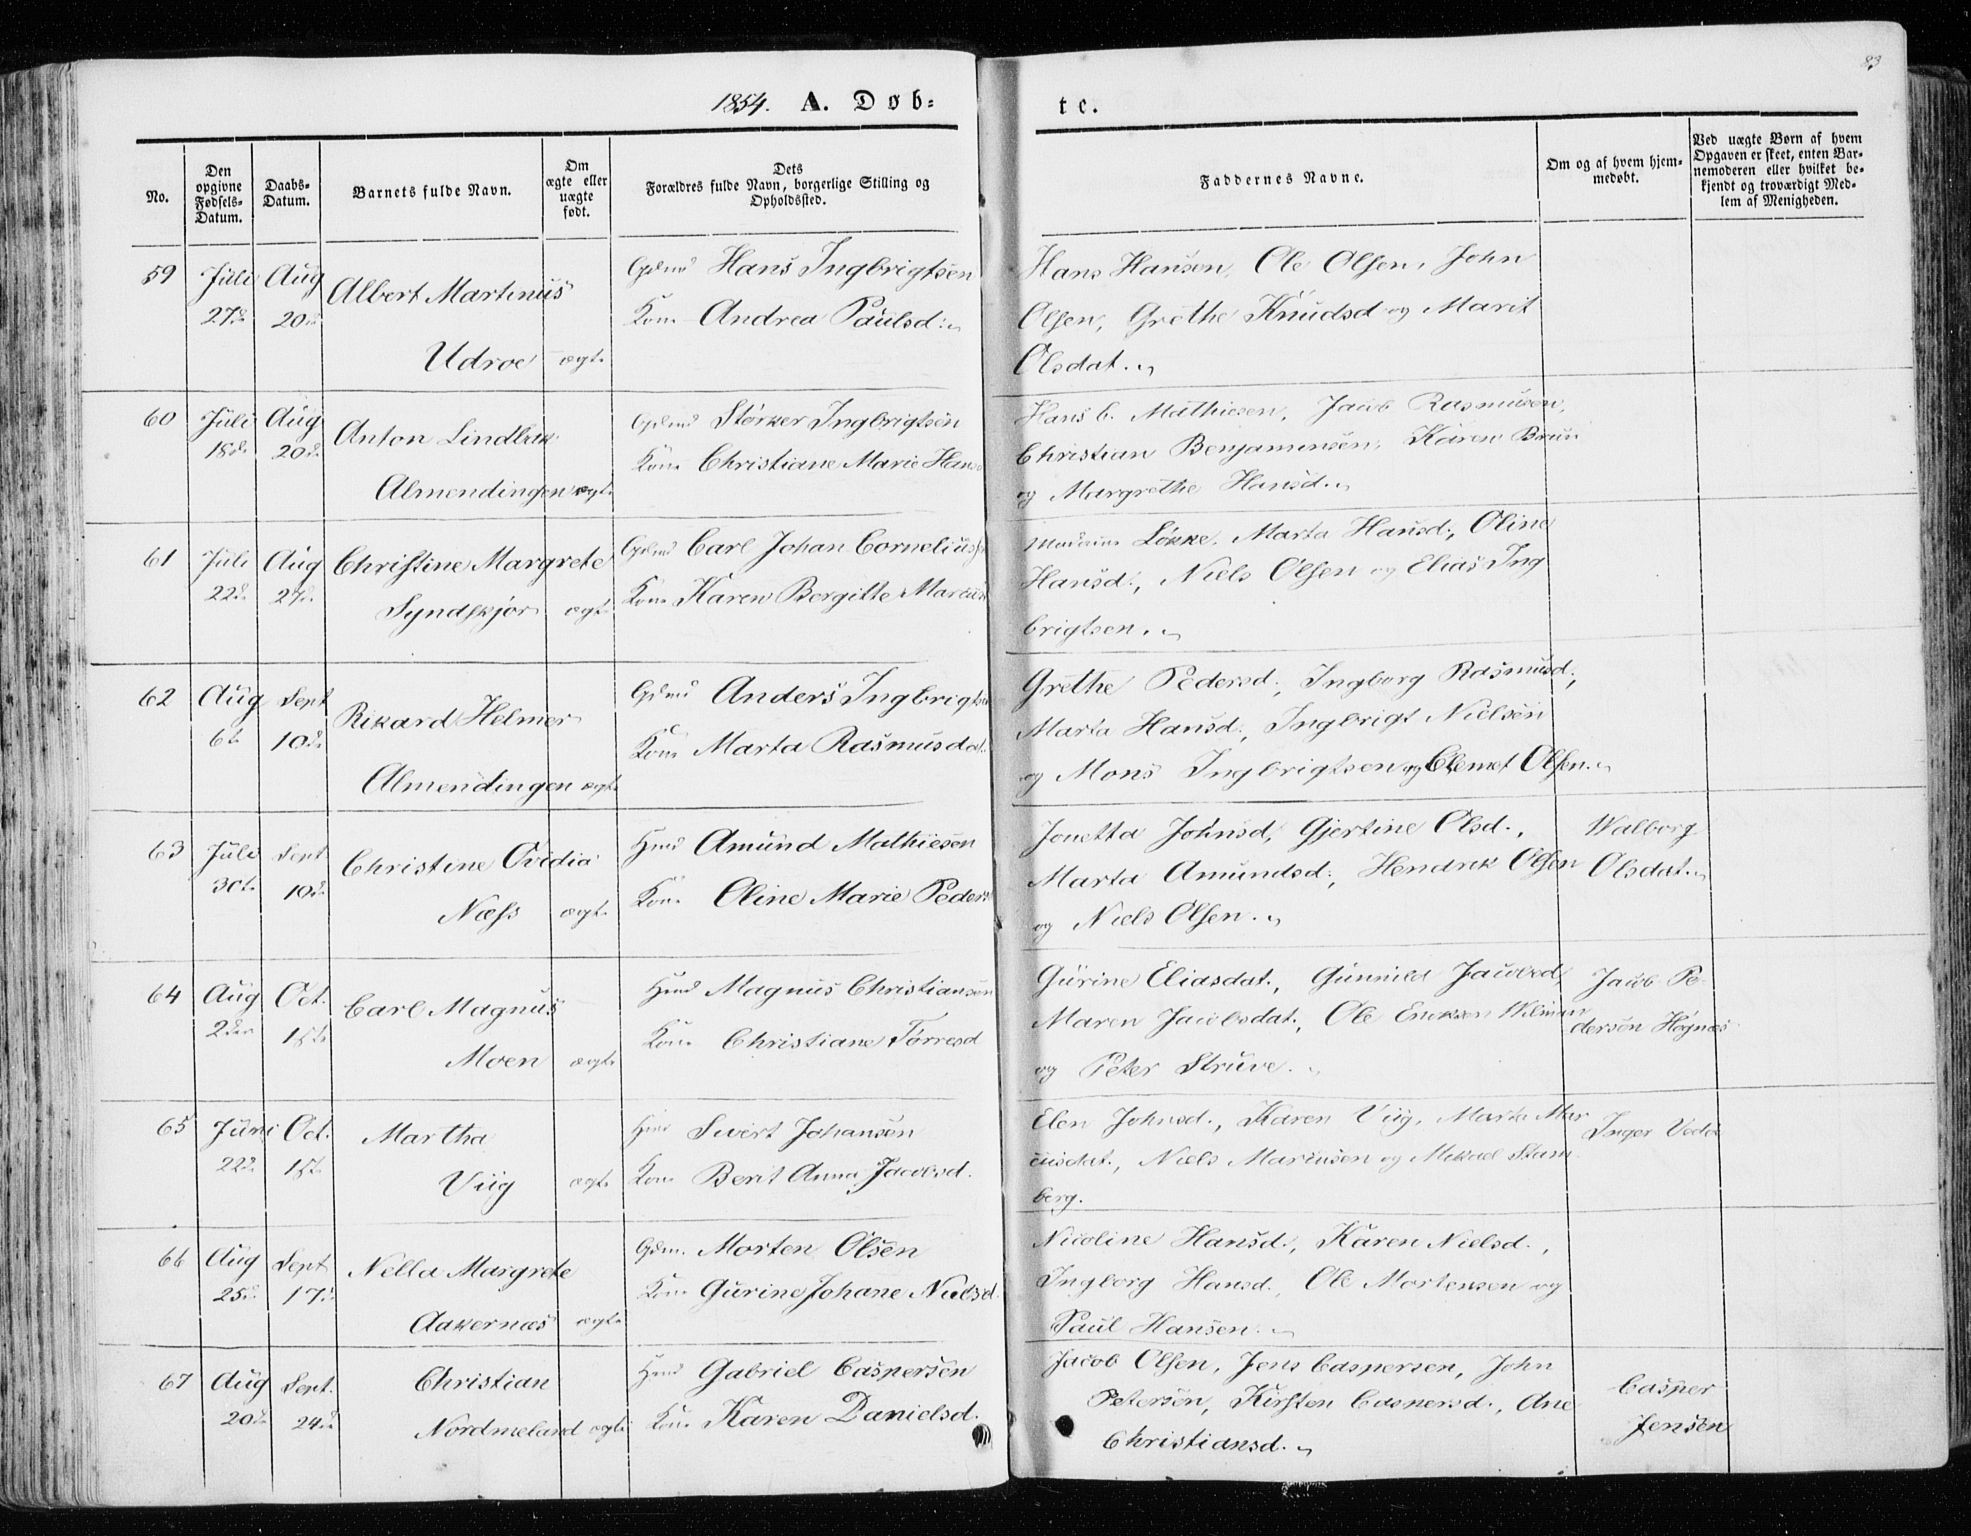 83
1854. A. Døb=
te.
No.
Den opgivne Fødsels-Datum.
Daabs-Datum.
Barnets fulde Navn.
Om ægte eller uægte født.
Dets Forældres fulde Navn, borgerlige Stilling og Opholdssted.
Faddernes Navne.
Om og af hvem hjem-medøbt.
Ved uægte Børn af hvem Opgaven er skeet, enten Bar-nemoderen eller hvilket be-kjendt og troværdigt Med-lem af Menigheden.
59 Juli Aug Albert Martinus Gdmd Hans Ingbrigtsen Hans Hansen, Ole Olsen, John
27de 20de Kone Andrea Paulsd: Olsen, Grethe Knudsd og Marit
Udroe ægte Olsdat.
60 Juli Aug Anton Lindbæk Gdmd Størker Ingbrigtsen Hans C. Mathiesen, Jacob Rasmusen,
18de 20de Kone Christiane Marie Hansd Christian Benjaminsen, Karen Bruun
Almendingen ægte og Margrethe Hansd.
61 Juli Aug Christine Margrete Gdmd Carl Johan Corneliuss Madame Løkke, Marta Hansd., Oline
22de 27de Syndskjør ægte Kone Karen Bergitte Hansd., Niels Olsen og Elias Ing
brigtsen.
62 Aug Sept Rikard Helmer Gdmd Anders Ingbrigtsen Grethe Pedersd., Ingborg Rasmusd.,
6te 10de Kone Marta Rasmusdat. Marta Hansd., Ingbrigt Nielsen
Almendingen ægte og Mons Ingbrigtsen og Clemet Olsen.
63 Juli Sept Christine Ovidia Hmd Amund Mathiesen Jonetta Johnsd, Gjertine Olsd., Walborg
30te 10de Kone Oline Marie Peders Marta Amundsd., Hendrik Olsen Olsdat.
Næss ægte og Niels Olsen.
64 Aug Oct. Carl Magnus Hmd Magnus Christiansen Gurine Eliasdat., Gunnild Jacobsd, Jacob Pe-
2den 1ste Kone Christiane Tørresd Maren Jacobsdat., Ole Ericksen dersen Høgnæs
Moen ægte og Peter Struve.
65 Juni Oct. Martha Hmd Sivert Johansen Elen Johnsd., Karen Viig, Marta Mar Inger
22de 1ste Kone Berit Anna Jacobsd. Niels og Mikael Stam
Viig ægte berg.
66 Aug Sept Nella Margrete Gdm. Morten Olsen Nicoline Hansd., Karen Nielsd.,
25de 17de Kone Gurine Johane Nielsd. Ingborg Hansd., Ole Mortensen og
Aakernæs ægte Paul Hansen.
67 Aug Sept. Christian Hmd Gabriel Caspersen Jacob Olsen, Jens Caspersen, John Casper
20de 24de Kone Karen Danielsd. Petersen, Kirsten Caspersd., Ane Jensen
Nordmeland ægte Christiansd.